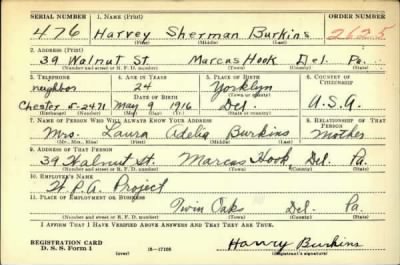 SERIAL NUMBER 1. NAME (Print) ORDER NUMBER
476 Harvey Sherman Burkins 2625
(First) (Middle) (Last)
2. ADDRESS (Print)
39 Walnut St. Marcus Hook Del. Pa.
(Number and street or R. F. D. number) (Town) (County) (State)
3. TELEPHONE 4. AGE IN YEARS 5. PLACE OF BIRTH 6. COUNTRY OF CITIZENSHIP
neighbor 24 Yorklyn
DATE OF BIRTH
Chester 5-2471 May 9 1916 Del. U.S.A.
(Exchange) (Number) (Mo.) (Day) (Yr.) (State or country)
7. NAME OF PERSON WHO WILL ALWAYS KNOW YOUR ADDRESS 8. RELATIONSHIP OF THAT PERSON
Mrs. Laura Adelia Burkins Mother
(Mr., Mrs., Miss) (First) (Middle) (Last)
9. ADDRESS OF THAT PERSON
39 Walnut St. Marcus Hook, Del. Pa.
(Number and street or R. F. D. number) (Town) (County) (State)
10. EMPLOYER'S NAME
W.P.A. Project
11. PLACE OF EMPLOYMENT OR BUSINESS
Twin Oaks Del. Pa.
(Number and street or R. F. D. number) (Town) (County) (State)
I AFFIRM THAT I HAVE VERIFIED ABOVE ANSWERS AND THAT THEY ARE TRUE.
REGISTRATION CARD
D. S. S. Form 1 (over) 16-17105 Harvey Burkins
(Registrant's signature)